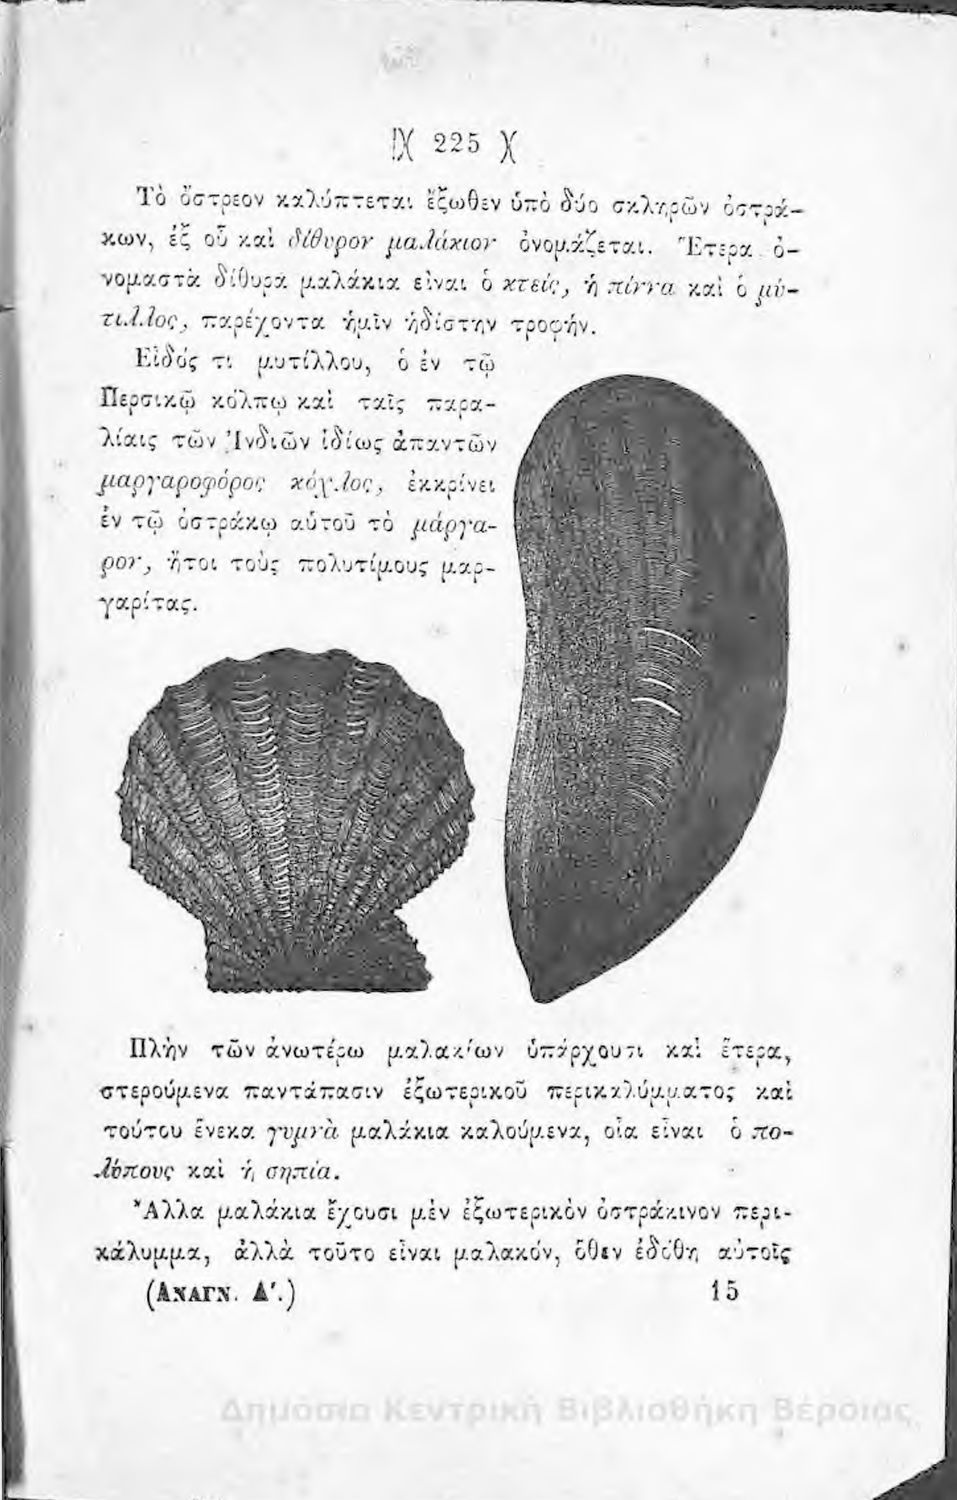 )( 225 )(
Τὸ ὄστρεον καλύπτεται ἔξωθεν ὑπὸ δύο σκληρῶν ὀστρά-
κων, ἐξ οὗ καὶ δίθυρον μαλάκιον ὀνομάζεται. Ἕτερα ὀ-
νομαστὰ δίθυρα μαλάκια εἶναι ὁ κτείς, ἡ πίννα καὶ ὁ μύ-
τιλλος, παρέχοντα ἡμῖν ἡδίστην τροφήν.
Εἶδός τι μυτίλλου, ὁ ἐν τῷ
Περσικῷ κόλπῳ καὶ ταῖς παρα-
λίαις τῶν Ἰνδιῶν ἰδίως ἀπαντῶν
μαργαροφόρος κόχλος, ἐκκρίνει
ἐν τῷ ὀστράκῳ αὑτοῦ τὸ μάργα-
ρον, ἤτοι τοὺς πολυτίμους μαρ-
γαρίτας.
Πλὴν τῶν ἀνωτέρω μαλακίων ὑπάρχουσι καὶ ἕτερα,
στερούμενα παντάπασιν ἐξωτερικοῦ περικαλύμματος καὶ
τούτου ἕνεκα γυμνὰ μαλάκια καλούμενα, οἷα εἶναι ὁ πο-
λύπους καὶ ἡ σηπία.
Ἄλλα μαλάκια ἔχουσι μὲν ἐξωτερικὸν ὀστράκινον περι-
κάλυμμα, ἀλλὰ τοῦτο εἶναι μαλακόν, ὅθεν ἐδόθη αὐτοῖς
(ΑΝΑΓΝ. Δ'.) 15
Δημόσια Κεντρική Βιβλιοθήκη Βέροιας